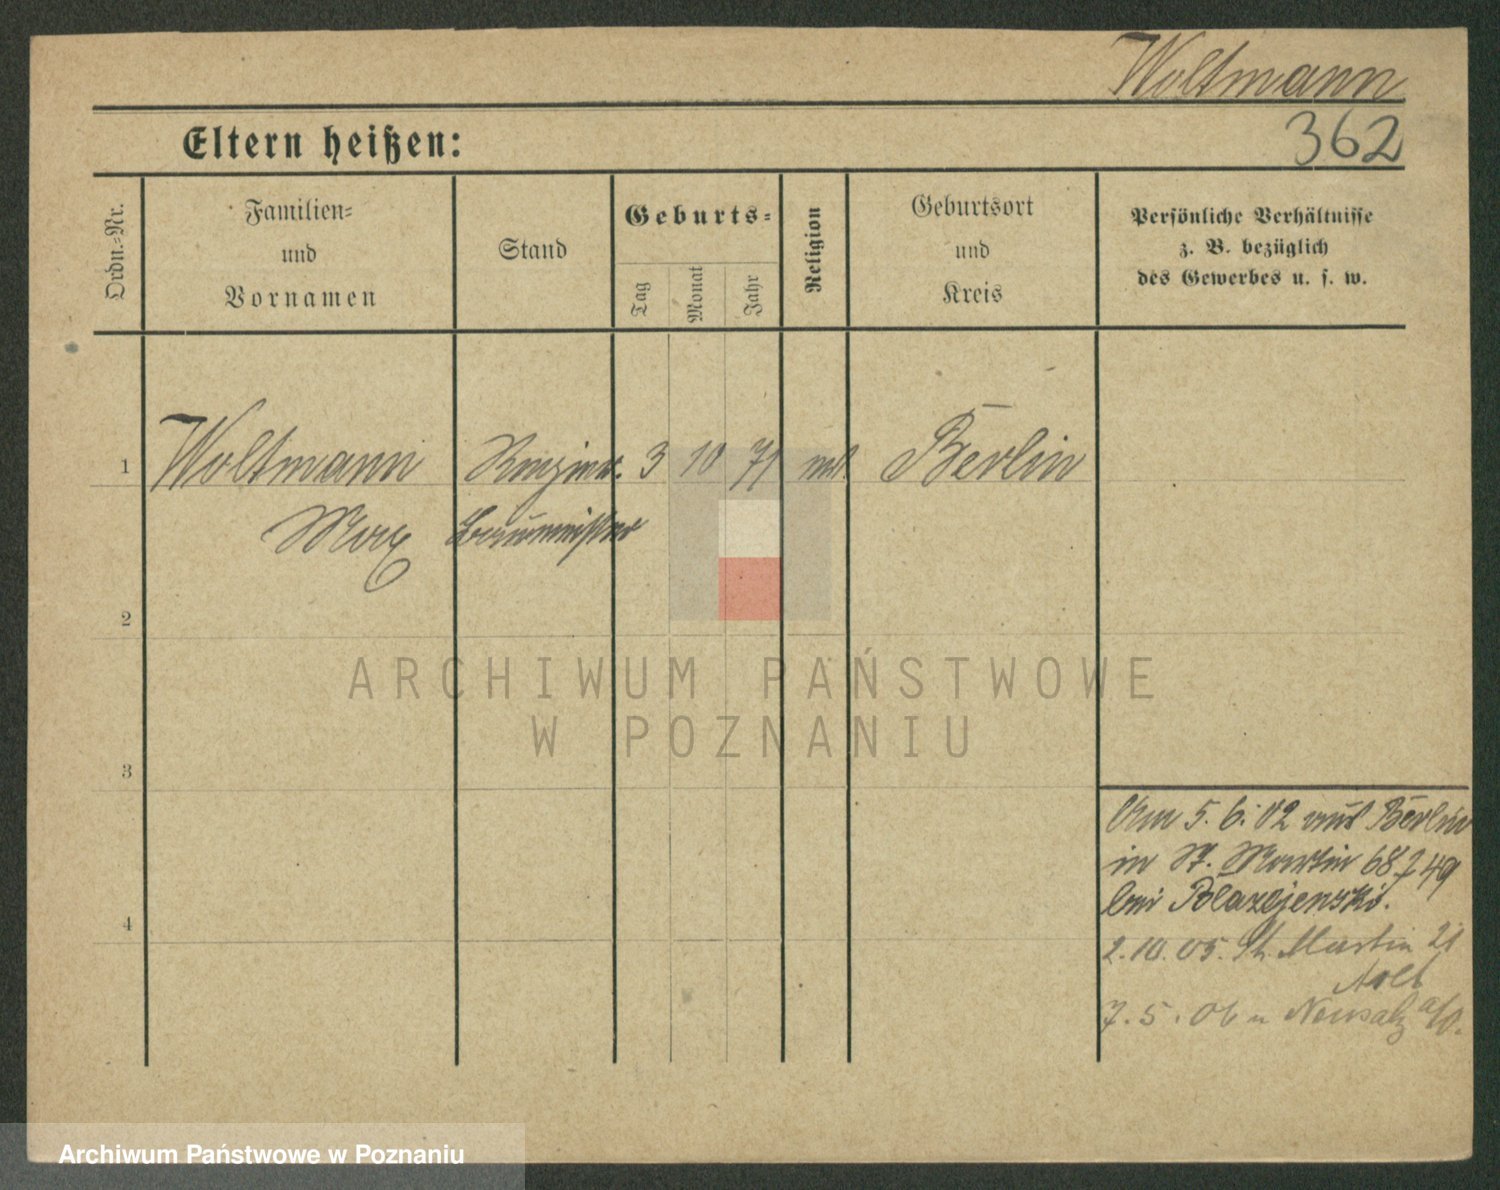 Woltmann
362
Eltern heißen:
Ordn.-Nr.
Familien-
und
Vornamen
Stand
Geburts-
Tag
Monat
Jahr
Religion
Geburtsort
und
Kreis
Persönliche Verhältnisse
z. B. bezüglich
des Gewerbes u. s. w.
1 Woltmann 3 10 71 Berlin
Max Baumeister
2
3
4
Am 5. 6. 02 aus Berlin
in St. Martin 68
bei Blazejewski.
2. 10. 05. St. Martin 21
7. 5. 06 n Neusalz a/O.
ARCHIWUM PAŃSTWOWE
W POZNANIU
Archiwum Państwowe w Poznaniu